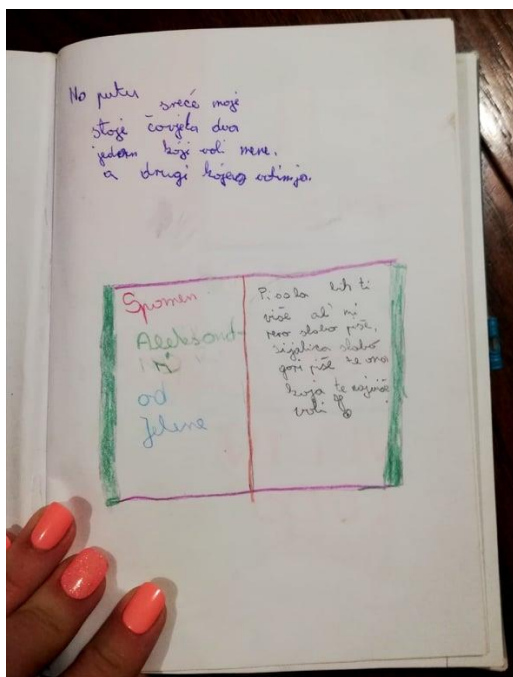 Na putu sreće moje
stoje čovjeka dva
jedan koji voli mene,
a drugi kojeg volim ja.
Spomen
Aleksand-
ri
od
Jelene
Pisala bih ti
više al' mi
pero slabo piše,
sijalica slabo
gori piše ti ona
koja te najviše
voli